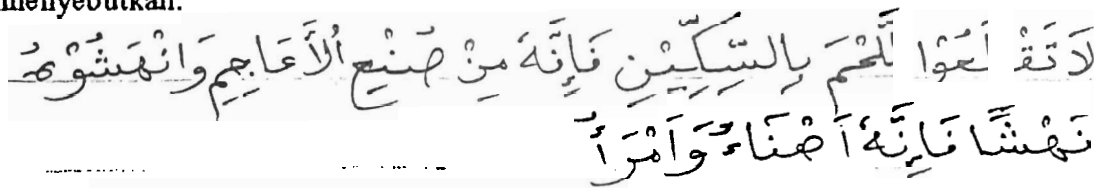 menyebutkan:
لَا تَقْطَعُوْا للَّحْمَ بِالسِّكِّيْنِ فَإِنَّهُ مِنْ صُنْيعِ اْلأَعَاجِمِ وَانْهَشُوْهُ
نَهْشًا فَإِنَّهُ اَهْنَاءُ وَاَمْرَأُ